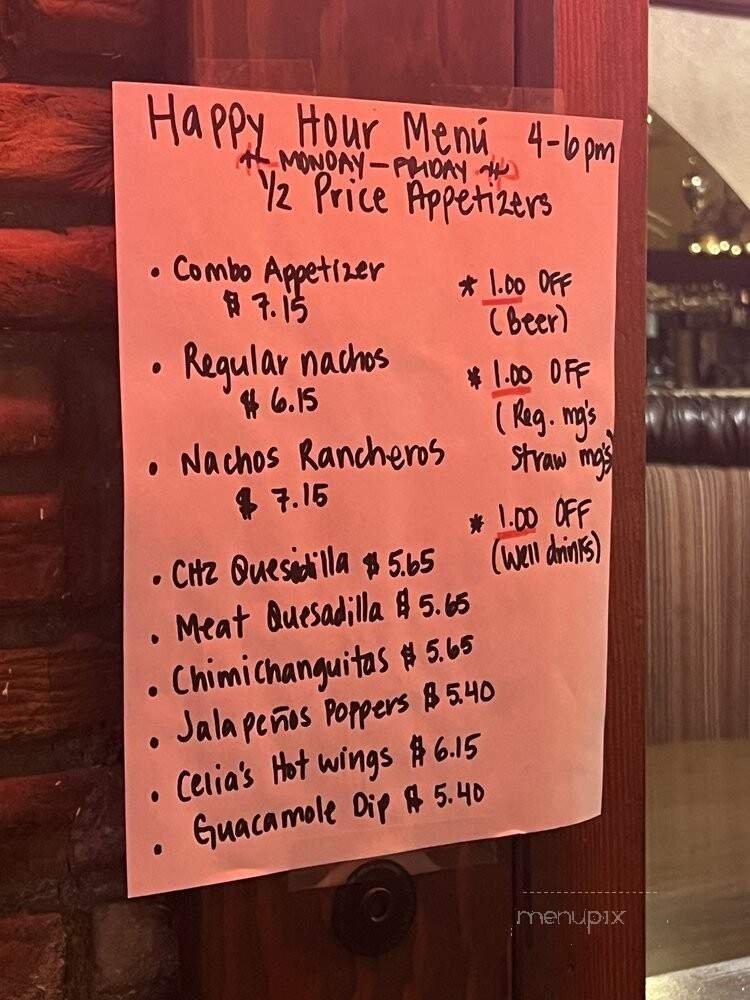 Happy Hour Menú 4-6pm
MONDAY - FRIDAY
1/2 Price Appetizers
• Combo Appetizer
$ 7.15
• Regular nachos
$ 6.15
• Nachos Rancheros
$ 7.15
• CHz Quesadilla $ 5.65
• Meat Quesadilla $ 5.65
• Chimichanguitas $ 5.65
• Jalapeños Poppers $ 5.40
• Celia's Hot wings $ 6.15
• Guacamole Dip $ 5.40
* 1.00 OFF
(Beer)
* 1.00 OFF
(Reg. mg's
Straw mg's)
* 1.00 OFF
(Well drinks)
menupix